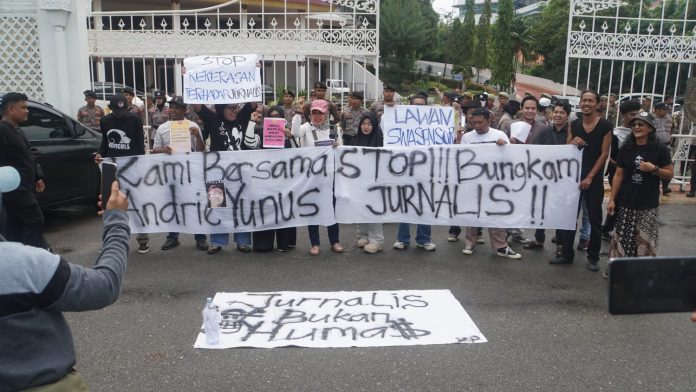 STOP
KEKERASAN
TERHADAP JURNALIS
LAWAN
SWASENSOR
Kami Bersama
Andrie Yunus
STOP!!! Bungkam
JURNALIS !!
Jurnalis
Bukan
Huma$